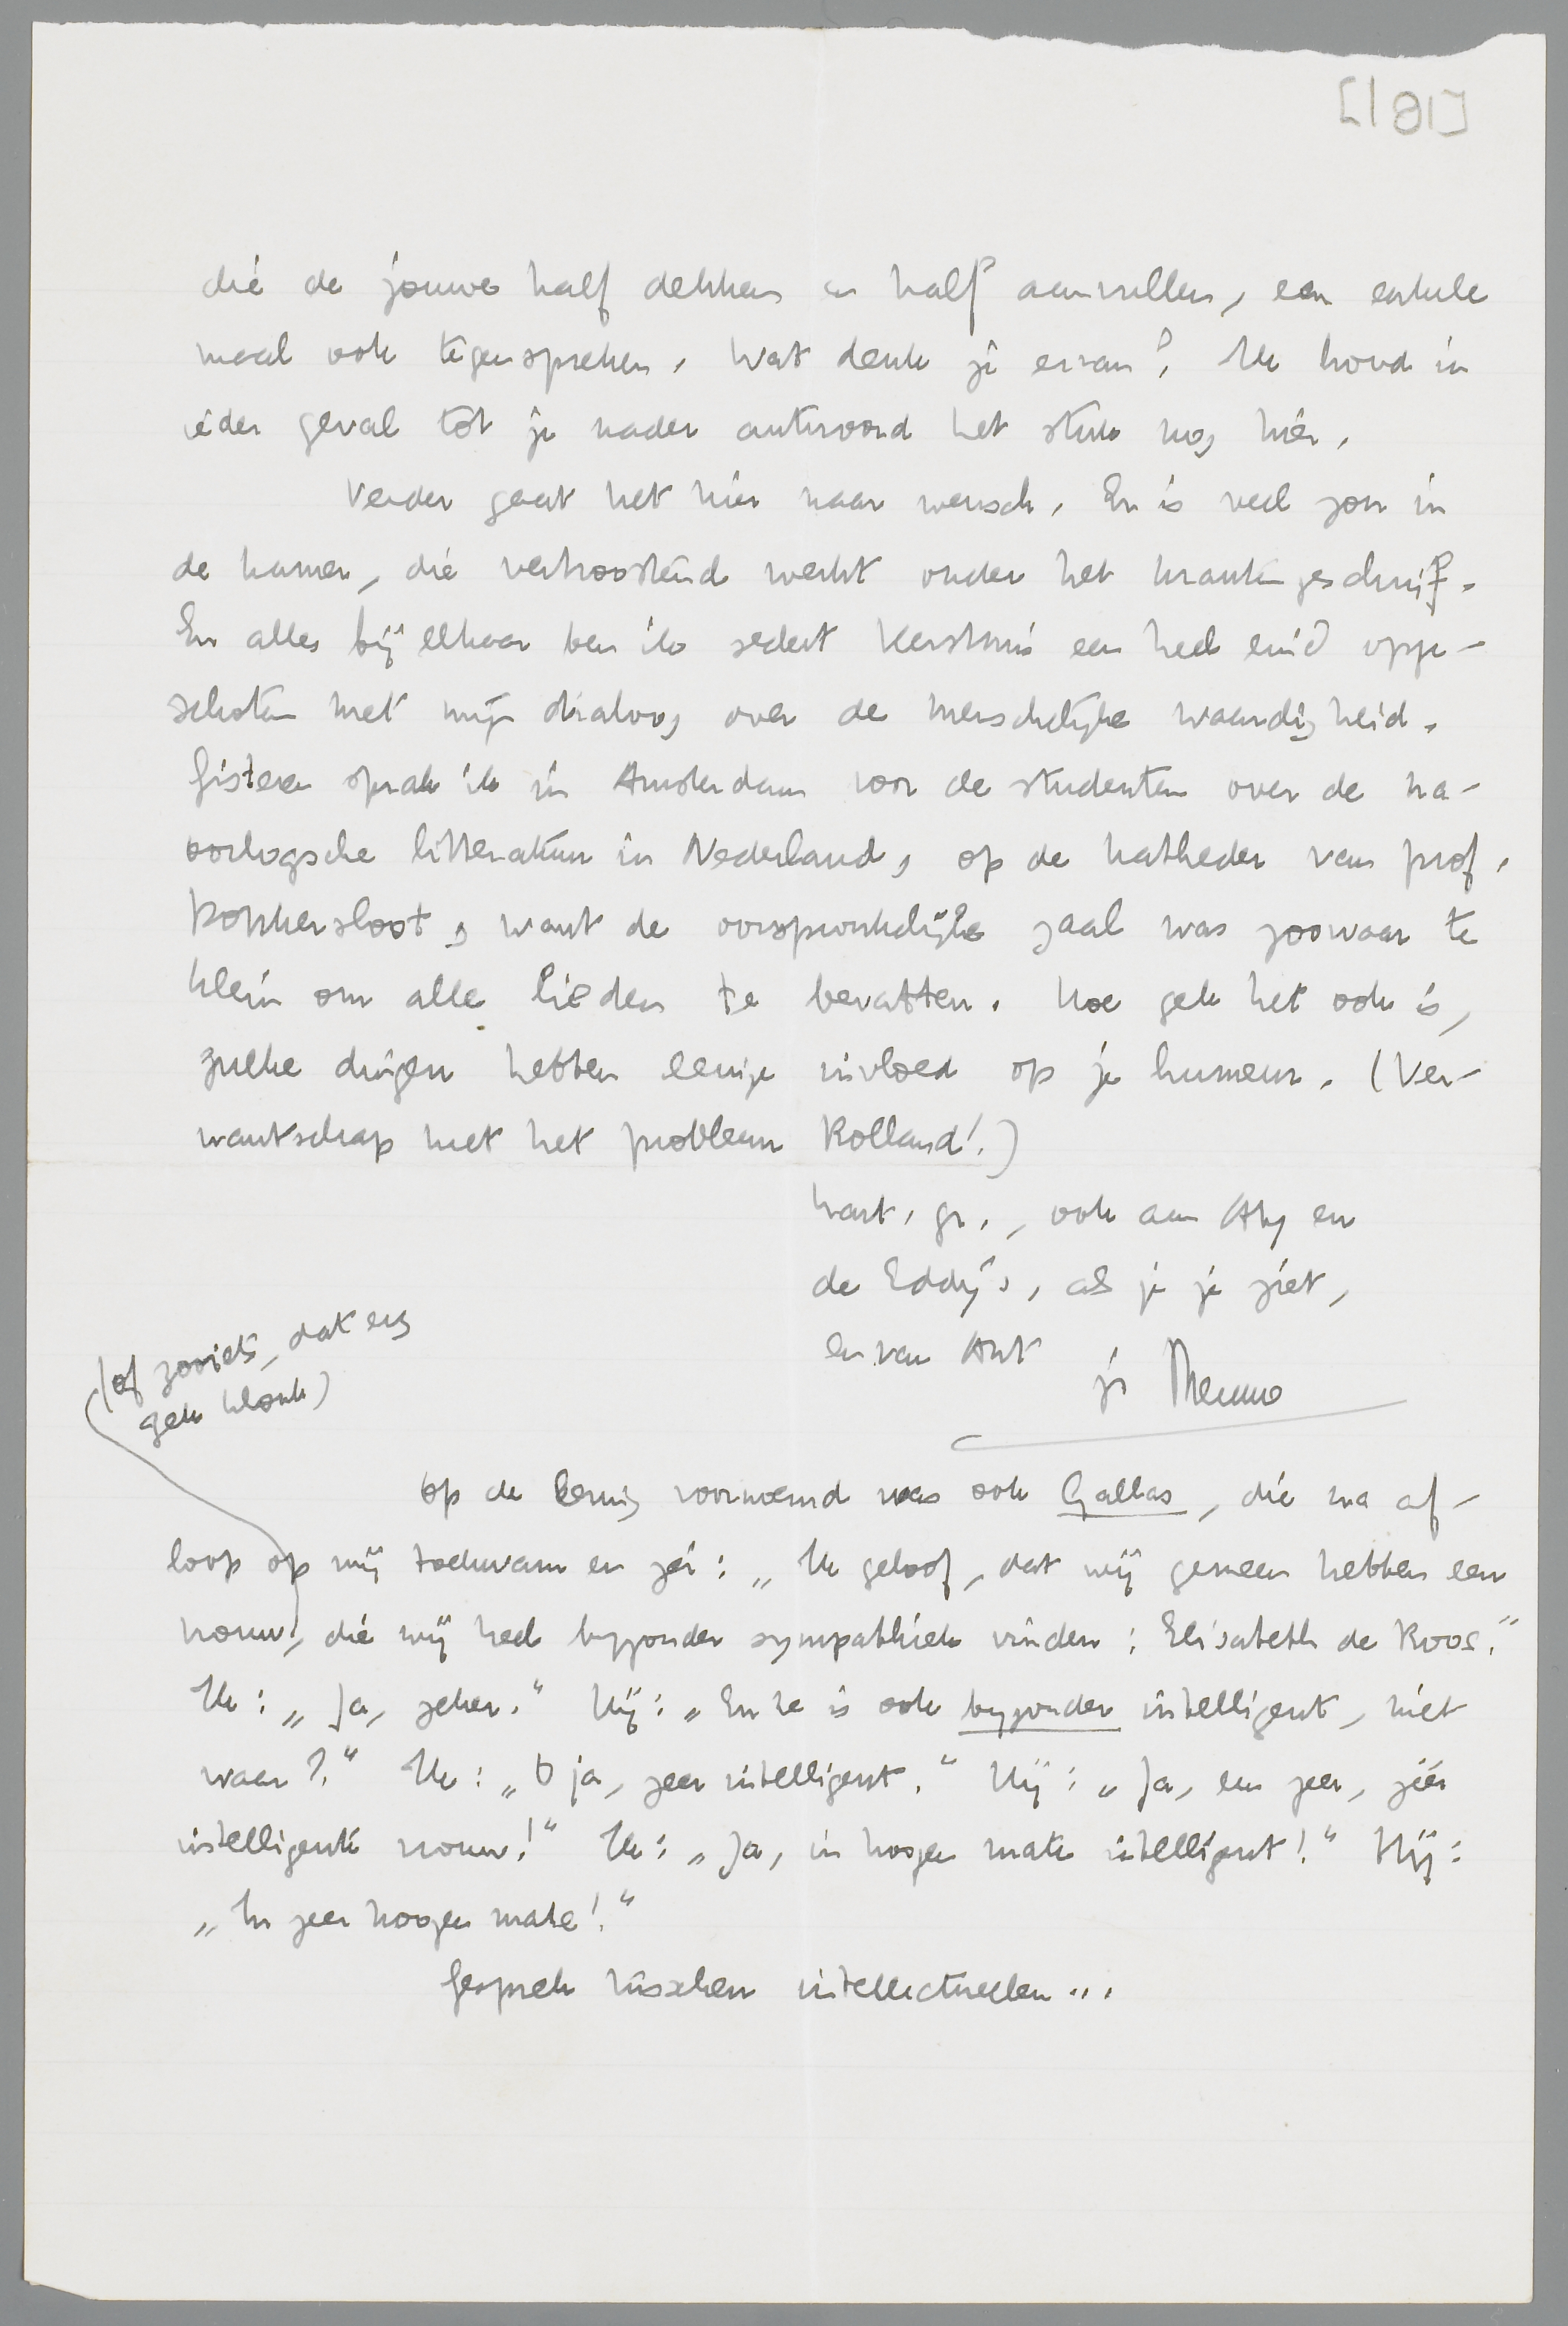 [181]
die de jouwe half dekken en half aanvullen, een enkele
maal ook tegenspreken. Wat denk je ervan? Ik houd in
ieder geval tot je nader antwoord het stuk nog hier.
Verder gaat het hier naar wensch. Er is veel zon in
de kamer, die vertroostend werkt onder het krantengeschrijf.
En alles bij elkaar ben ik sedert Kerstmis een heel eind opge-
schoten met mijn dialoog over de menschelijke waardigheid.
Gisteren sprak ik in Amsterdam voor de studenten over de na-
oorlogsche litteratuur in Nederland, op de katheder van prof.
Donkersloot, want de oorspronkelijke zaal was zoowaar te
klein om alle lieden te bevatten. Hoe gek het ook is,
zulke dingen hebben eenige invloed op je humeur. (Ver-
wantschap met het probleem Rolland!)
hart. gr., ook aan Aty en
de Eddy's, als je ze ziet,
en van Ant
je Menno
(of zooiets, dat erg
gek klonk)
Op de lezing voornoemd was ook Gallas, die na af-
loop op mij toekwam en zei: „Ik geloof, dat wij gemeen hebben een
vrouw, die wij heel byzonder sympathiek vinden: Elisabeth de Roos."
Ik: „Ja, zeker." Hij: „En ze is ook byzonder intelligent, niet
waar?" Ik: „O ja, zeer intelligent." Hij: „Ja, een zeer, zéér
intelligente vrouw!" Ik: „Ja, in hooge mate intelligent!" Hij:
„In zeer hooge mate!"
Gesprek tusschen intellectueelen...